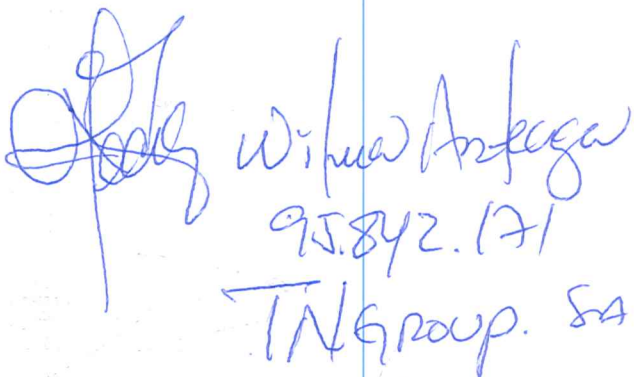 Wilmer Arteaga
95.842.171
TNGROUP. SA